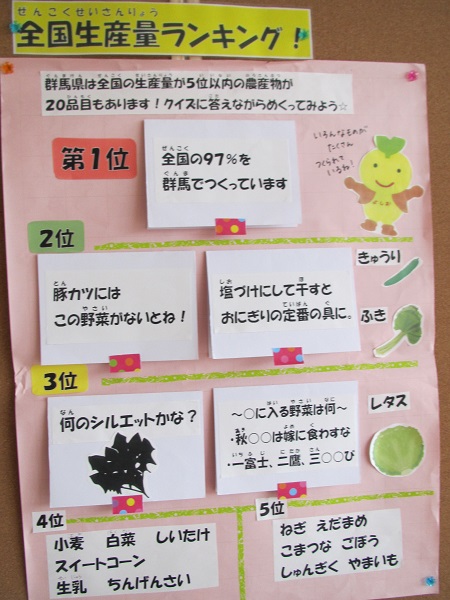 ぜんこくせいさんりょう
全国生産量ランキング！
群馬県は全国の生産量が5位以内の農産物が
20品目もあります！クイズに答えながらめくってみよう☆
いろんなものが
たくさん
つくられて
いるね！
第1位
ぜんこく
全国の97％を
ぐんま
群馬でつくっています
2位
きゅうり
とん
豚カツには
やさい
この野菜がないとね！
しお ほ
塩づけにして干すと
ていばん ぐ
おにぎりの定番の具に。
ふき
3位
なん
何のシルエットかな？
はい やさい なに
～○に入る野菜は何～
あき よめ く
・秋○○は嫁に食わすな
いちふじ にたか さん
・一富士、二鷹、三○○び
レタス
4位
小麦 白菜 しいたけ
スイートコーン
生乳 ちんげんさい
5位
ねぎ えだまめ
こまつな ごぼう
しゅんぎく やまいも